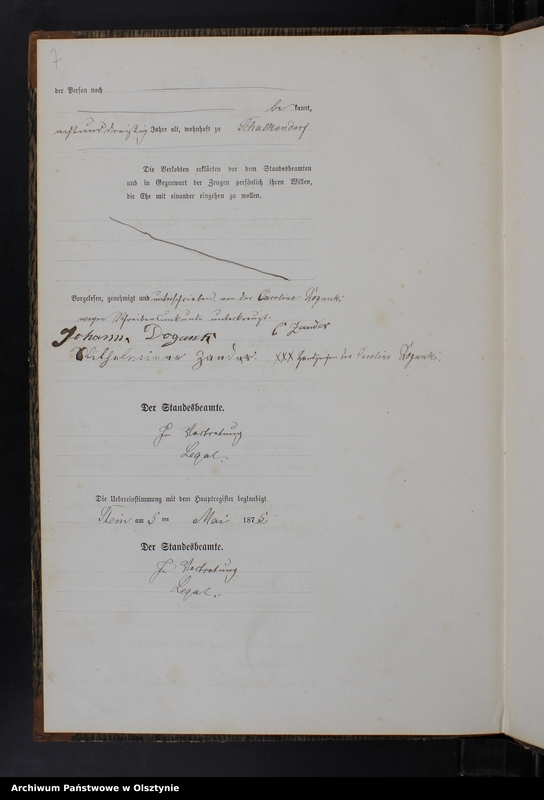 7
der Person nach
be kannt,
achtunddreißig Jahre alt, wohnhaft zu Schalkendorf
Die Verlobten erklärten vor dem Standesbeamten
und in Gegenwart der Zeugen persönlich ihren Willen,
die Ehe mit einander eingehen zu wollen.
Vorgelesen, genehmigt und unterschrieben, von der Caroline
wegen Schreibensunkunde unterkreuzt.
Johann C Zander
Wilhelmine Zander XXX Handzeichen der Caroline
Der Standesbeamte.
In Vertretung
Legal.
Die Uebereinstimmung mit dem Hauptregister beglaubigt
Stein am 5 ten Mai 1875.
Der Standesbeamte.
In Vertretung
Legal.
Archiwum Państwowe w Olsztynie